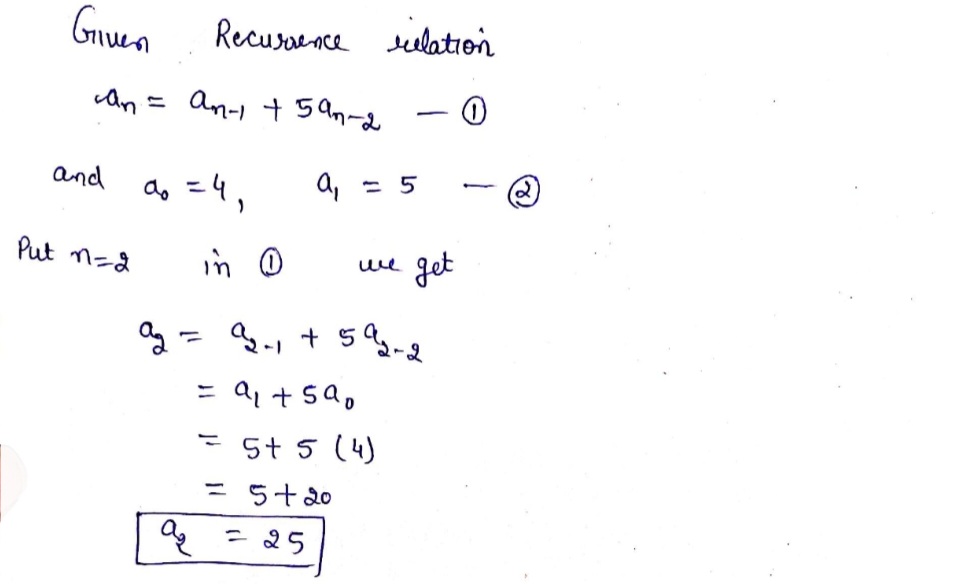 Given Recurrence relation
an = an-1 + 5an-2 — ①
and a0 = 4, a1 = 5 — ②
Put n=2 in ① we get
a2 = a2-1 + 5a2-2
= a1 + 5a0
= 5+ 5 (4)
= 5+20
a2 = 25